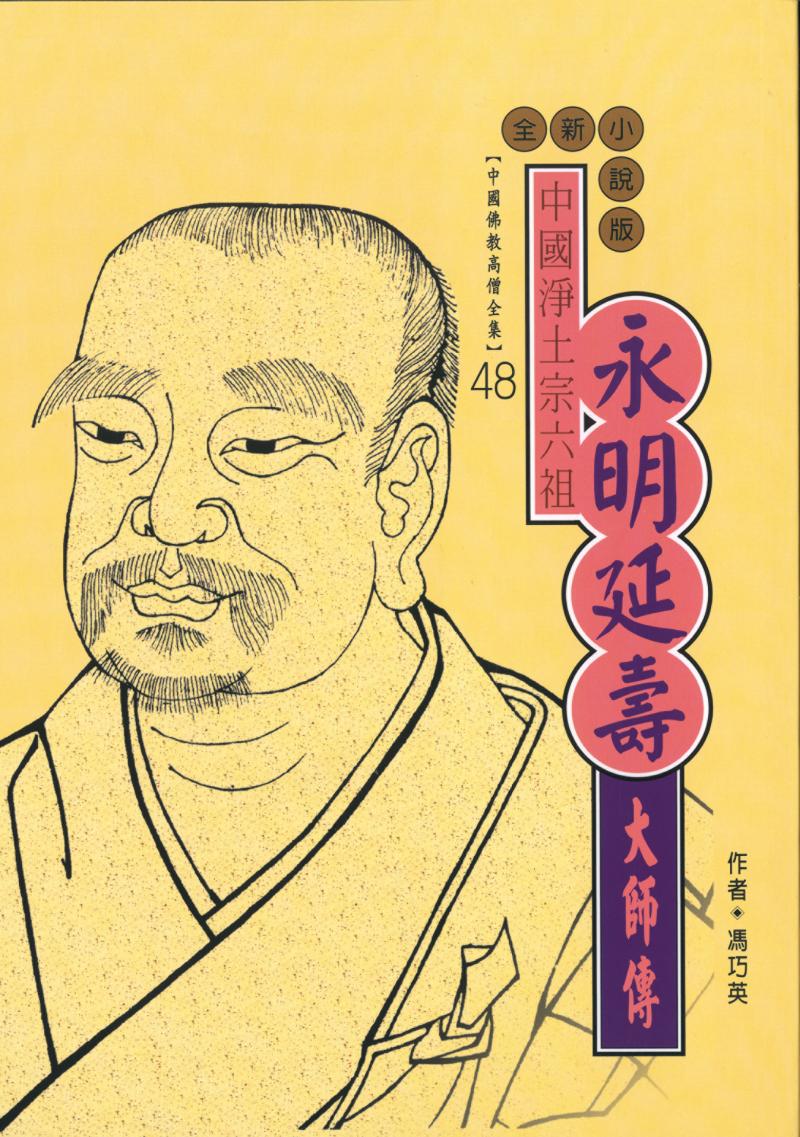 全新小說版
【中國佛教高僧全集】48
中國淨土宗六祖
永明延壽
大師傳
作者◈馮巧英